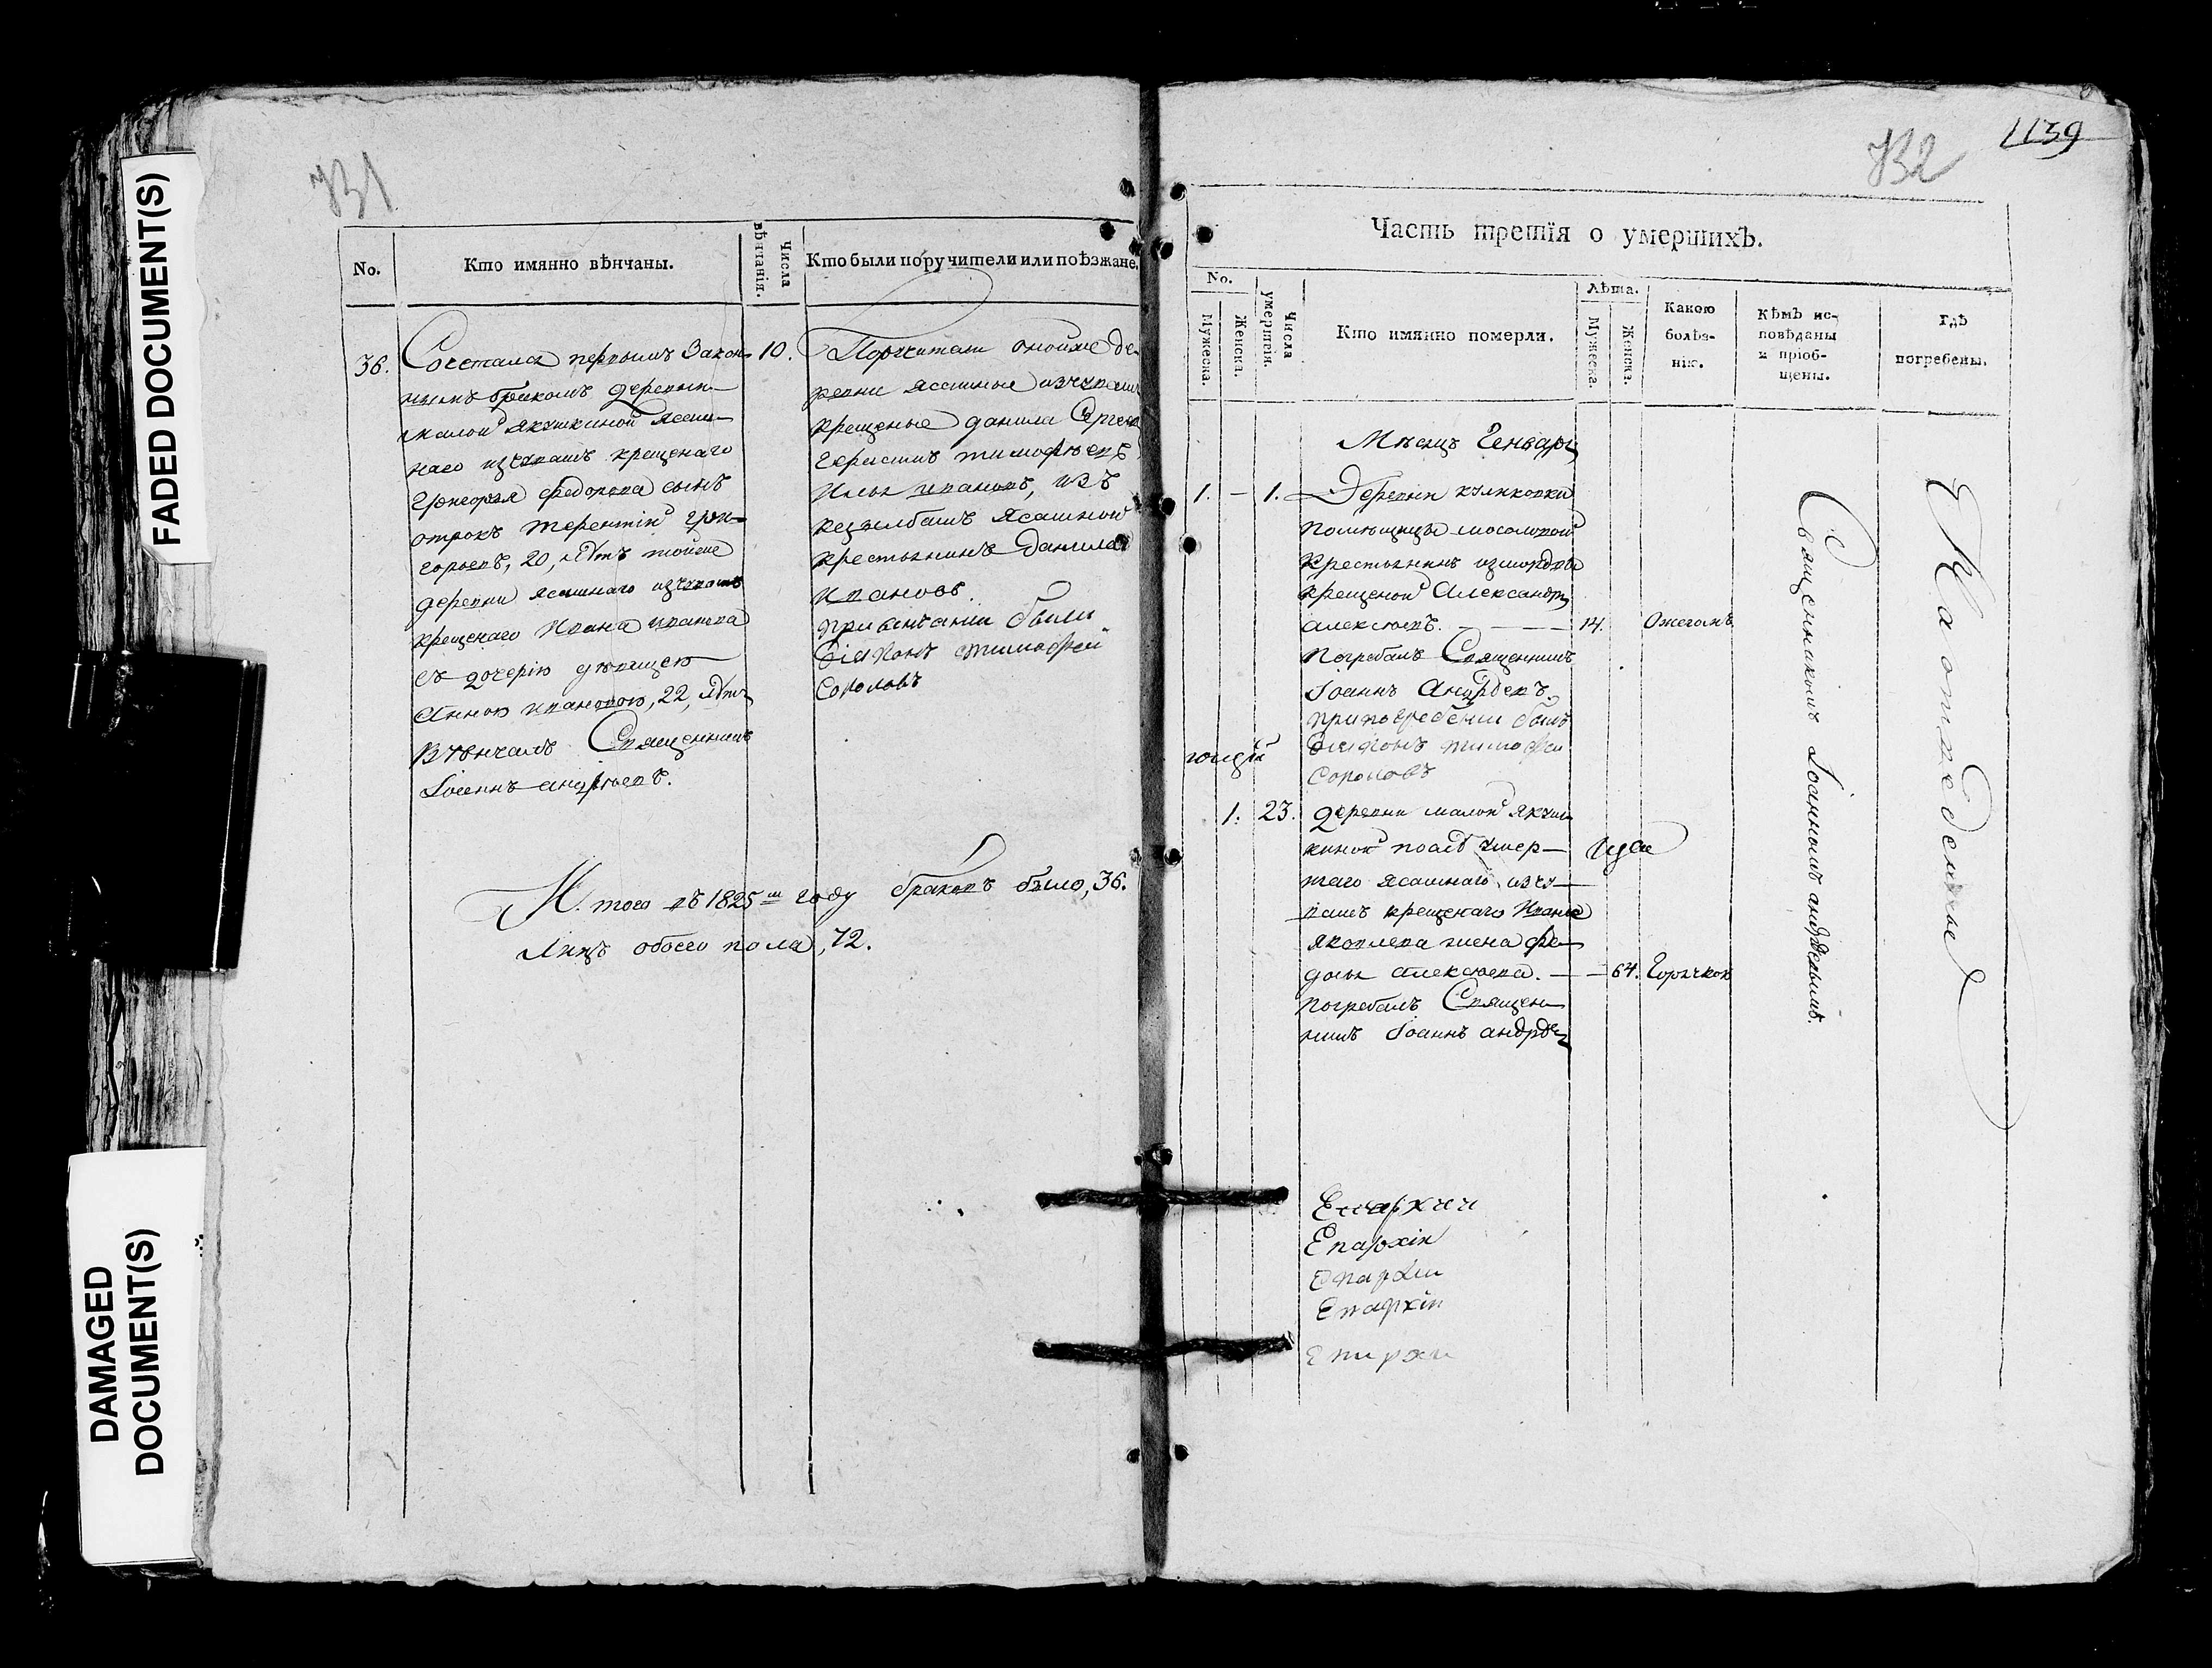 FADED DOCUMENT(S)
DAMAGED
DOCUMENT(S)
731
No.
Кто имянно вѣнчаны.
Числа
вѣнчанія.
Кто были поручители или поѣзжане.
36.
Сочетался первымъ Закон-
нымъ бракомъ деревни
малой якушкиной ясаш-
наго изчувашъ крещенаго
Григорья федорова сынъ
отрокъ терентій гри-
горьевъ, 20, лѣтъ тойже
деревни ясашнаго изчувашъ
крещенаго Ивана иванова
съ дочерію дѣвицею
Анною ивановою, 22, лѣтъ
Вѣнчалъ Священникъ
Іоаннъ андрѣевъ.
10.
Поручители онойже де-
ревни ясашные изчуваш
крещеные данила Серге
герасимъ тимофѣевъ
Илья ивановъ, изъ
ясашной
крестьянинъ данила
ивановъ.
при венчании были
діаконъ тимофей
Соколовъ
И того въ 1825 м году браковъ было, 36.
Лицъ обоего пола, 72.
732
1139
Часть третія о умершихъ.
No.
Мужеска.
Женска.
Числа
умертвія.
Кто имянно померли.
Лѣта.
Мужеска.
Женска.
Какою
болѣз-
нію.
Кѣмъ ис-
повѣданы
и пріоб-
щены.
Гдѣ
погребены.
Мѣсяцъ Генварь
1. — 1.
Деревни куликовки
помѣщицы мосоловой
крестьянинъ измордвы
крещеной Александръ
алексѣевъ. — 14. Ожегомъ
погребалъ Священникъ
Іоаннъ Андрѣевъ.
при погребении былъ
діаконъ тимофей
Соколовъ
1. 23.
деревни малой якуш
киной послѣ умер—
шаго ясашнаго изчу—
вашъ крещенаго Ивана
яковлева жена фе—
досья алексѣева. — 64. Горячкою
погребалъ Священ
никъ Іоаннъ андрѣе
Священникомъ Іоанномъ андрѣевымъ.
На отведенные
Епархии
Епархіи
Епархіи
Епархіи
Епархи